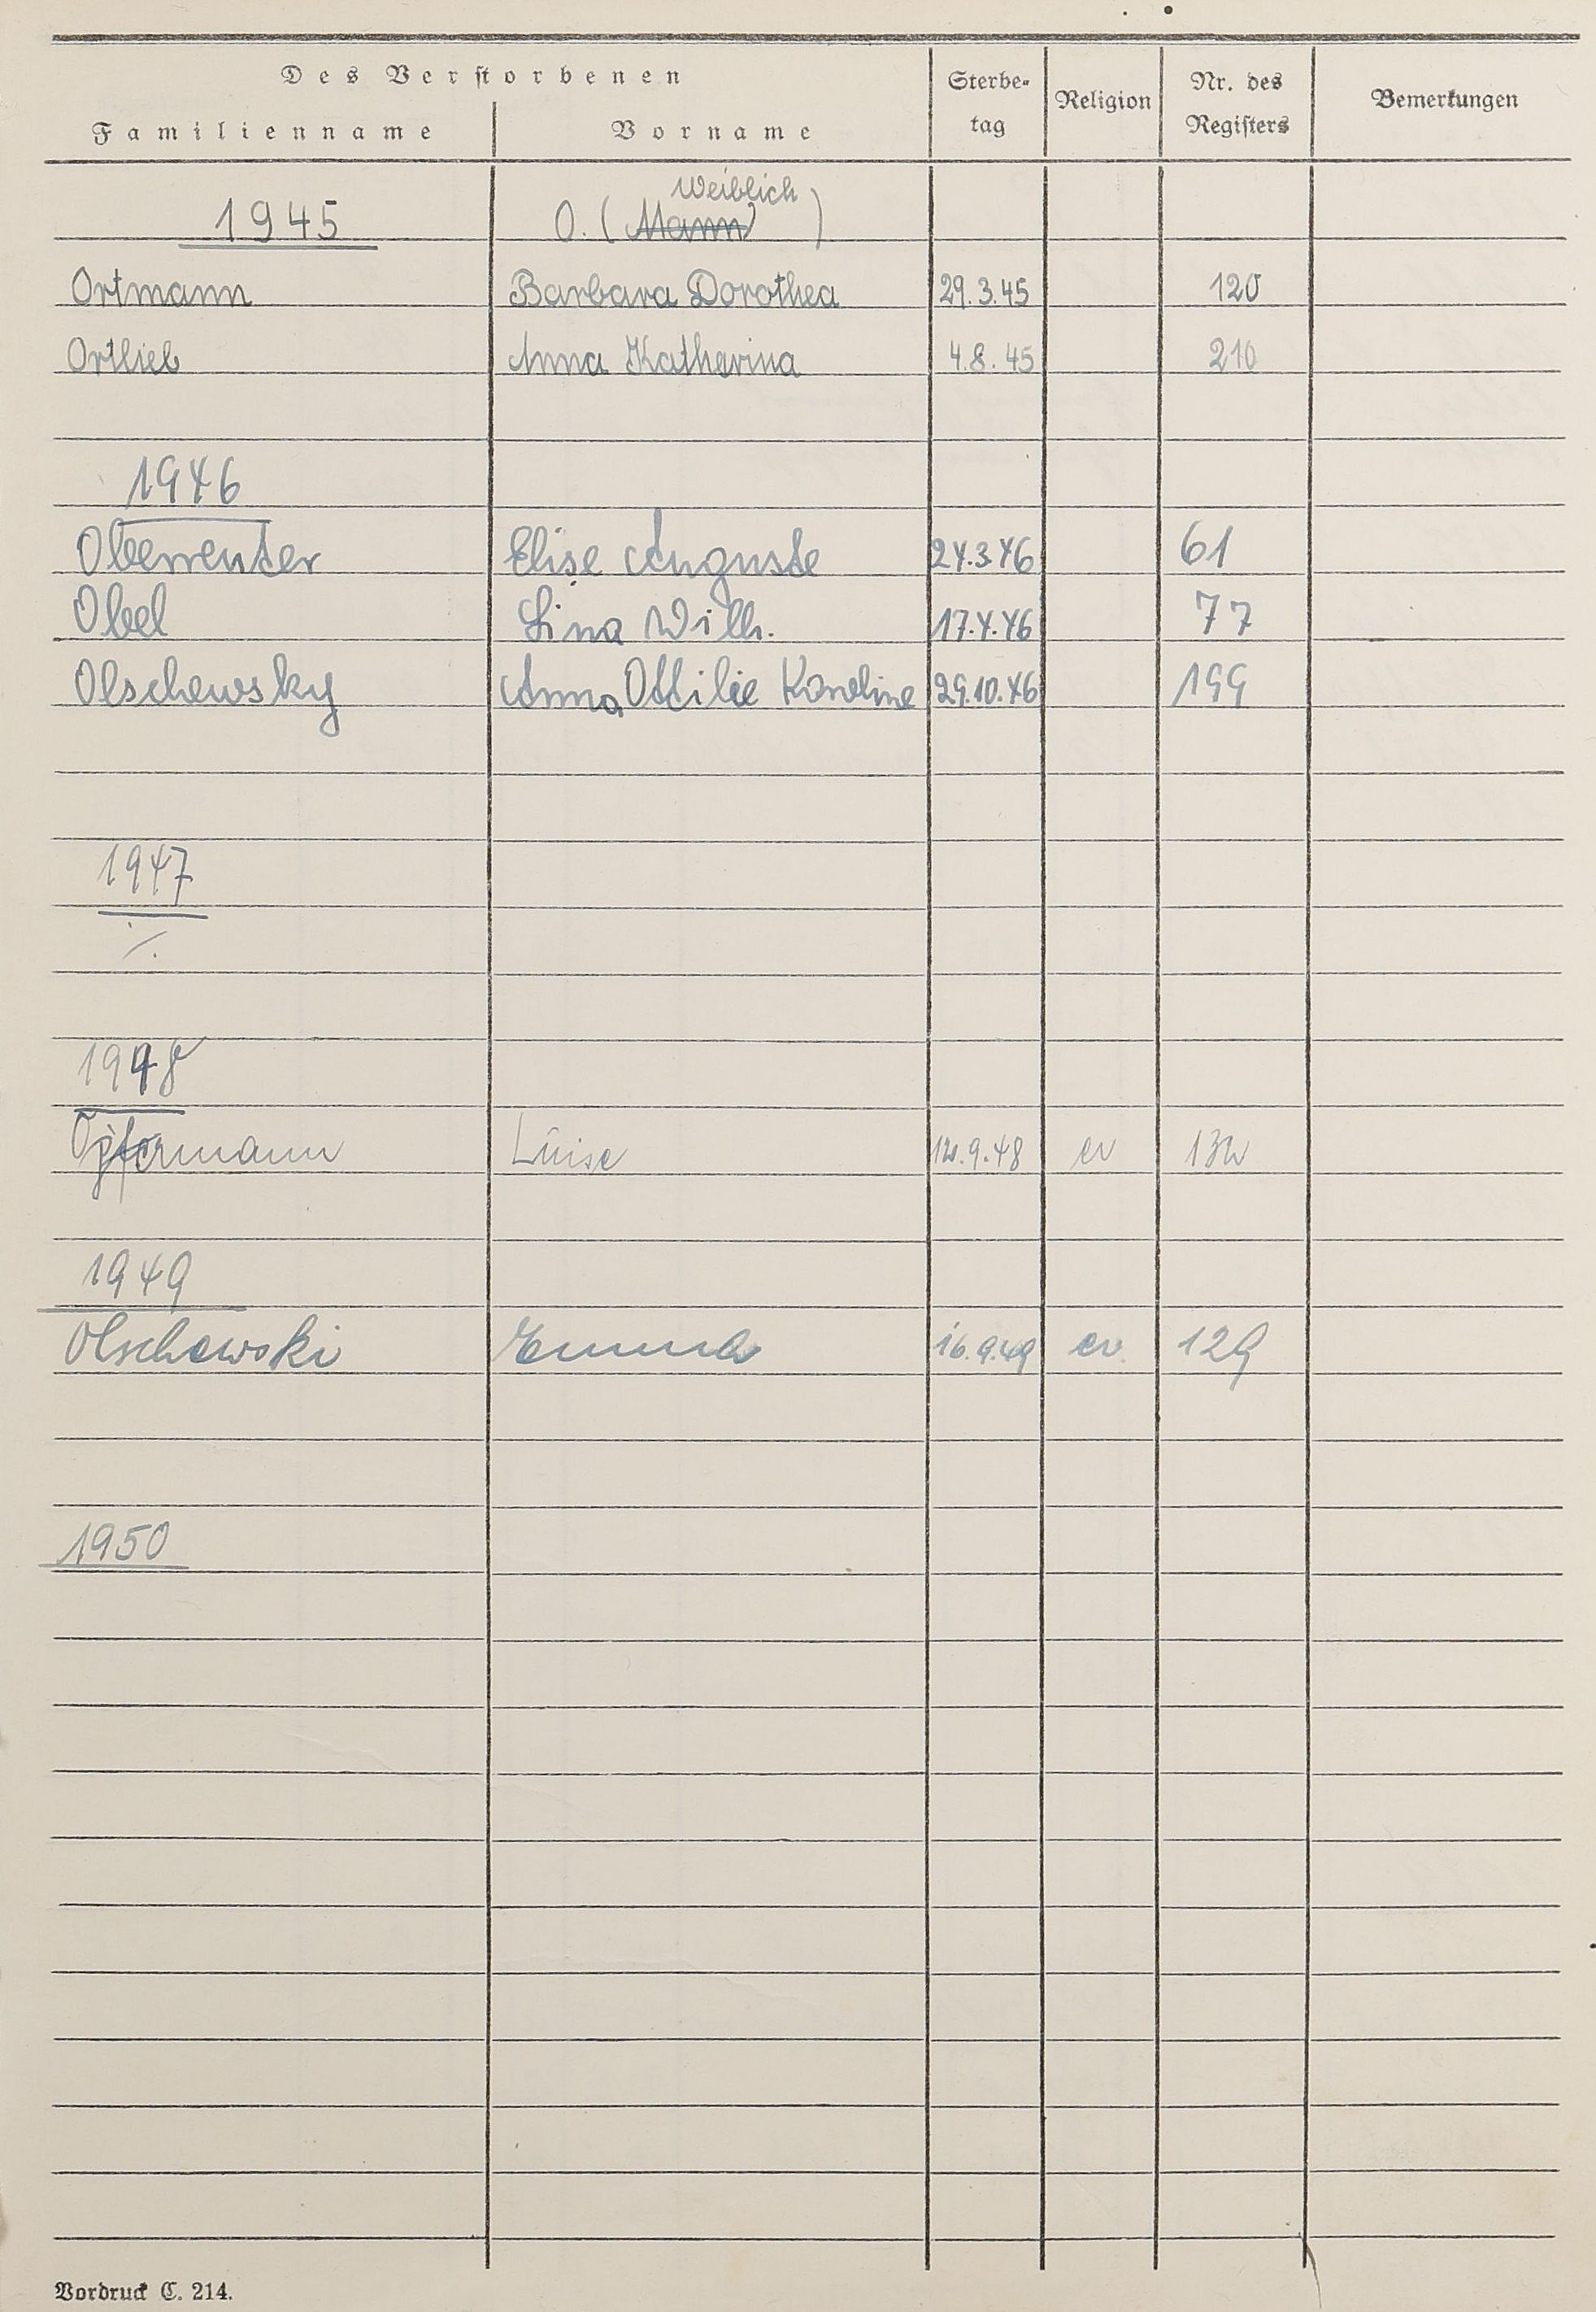 Des Verstorbenen
Familienname Vorname Sterbe-tag Religion Nr. des Registers Bemerkungen
Weiblich
1945 O. (Mann)
Ortmann Barbara Dorothea 29.3.45 120
Ortlieb Anna Katharina 4.8.45 210
1946
Oberrenter Elise Auguste 24.3.46 61
Obel Lina Wilh. 17.4.46 77
Olschewsky Anna Ottilie Karoline 29.10.46 199
1947
./.
1948
Opfermann Luise 12.9.48 ev 132
1949
Olschewski Emma 16.9.49 ev. 129
1950
Vordruck C. 214.